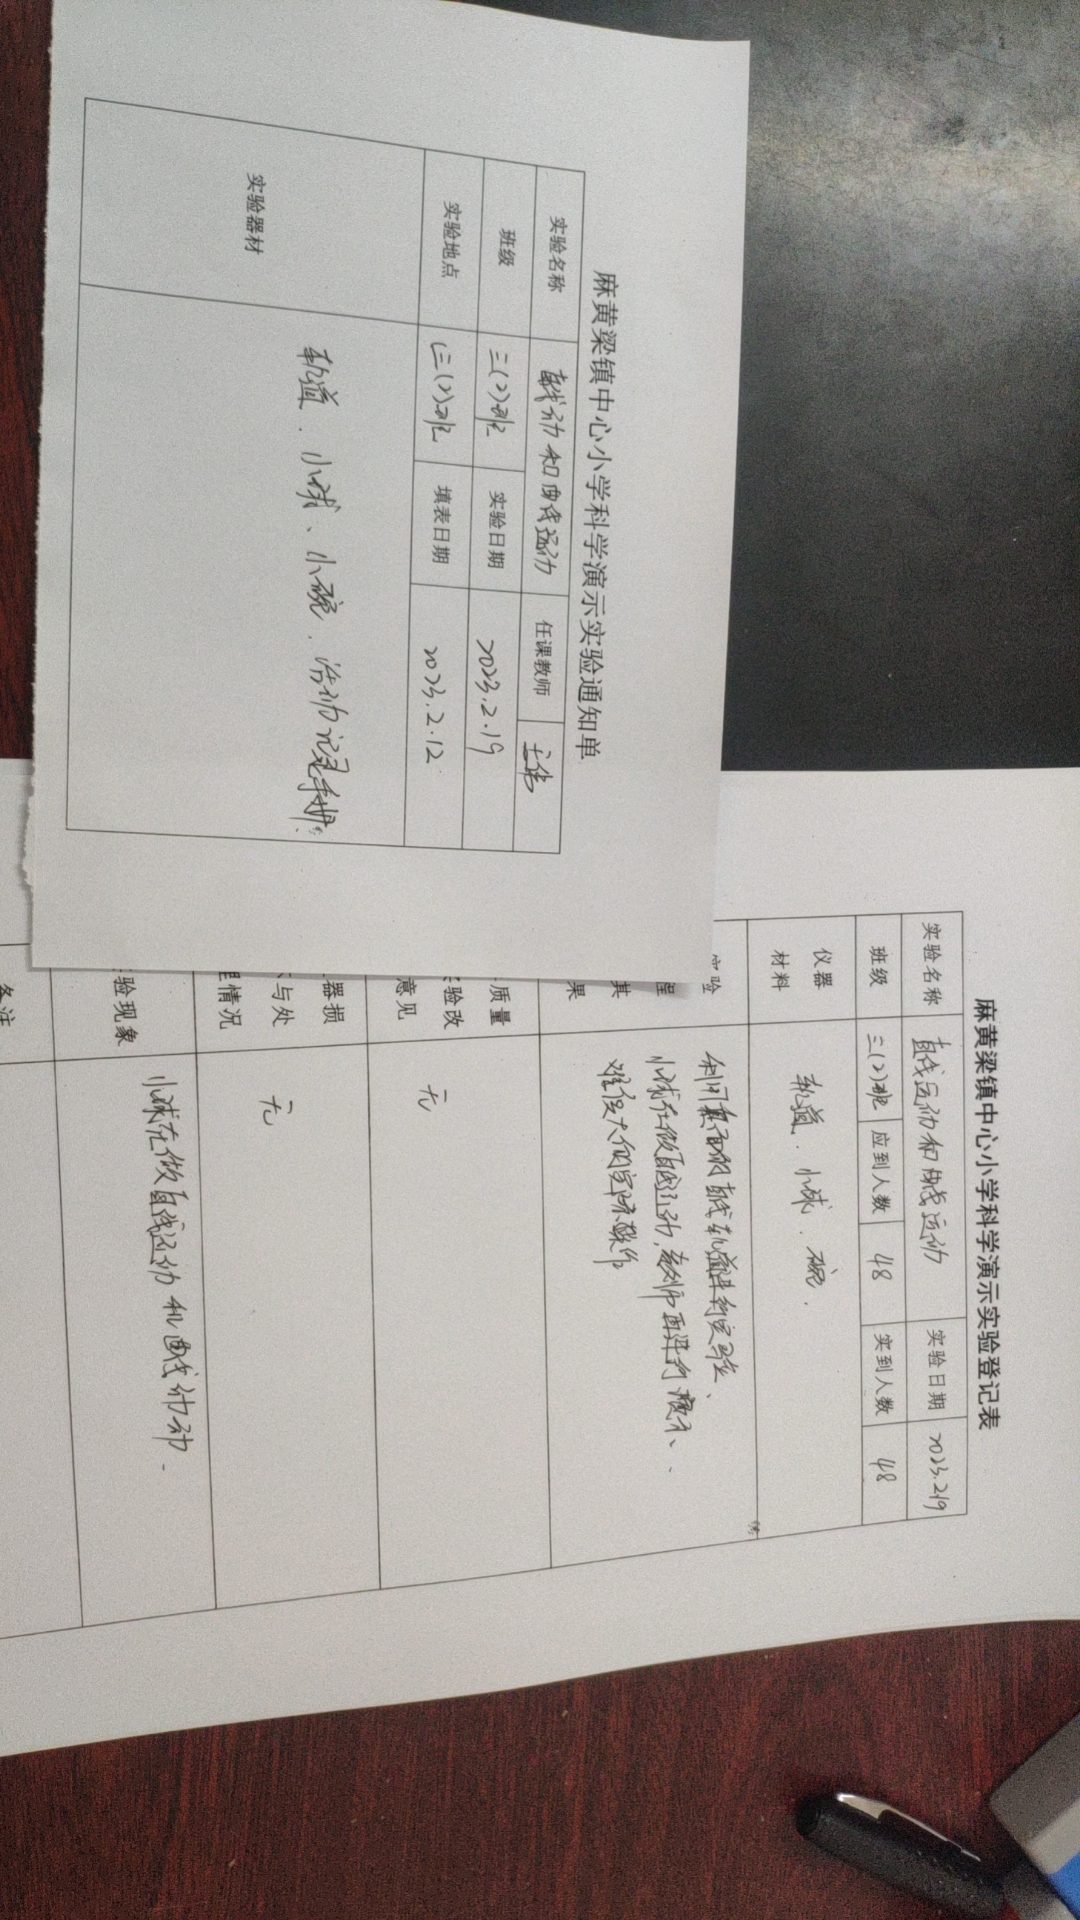 麻黄梁镇中心小学科学演示实验通知单
实验名称 直线运动和曲线运动 任课教师
班级 三(2)班 实验日期 2023.2.19
实验地点 三(2)班 填表日期 2023.2.12
实验器材 轨道、小球、小碗、活动记录手册
麻黄梁镇中心小学科学演示实验登记表
实验名称 直线运动和曲线运动 实验日期 2023.2.19
班级 三(2)班 应到人数 48 实到人数 48
仪器
材料
轨道、小球、碗.
验
程
其
果
利用 直线轨道进行实验、
小球在做直线运动, 教师再进行演示、
质量
验改
意见
无
器损
与处
情况
无
验现象
小球在做直线运动和曲线运动.
备注